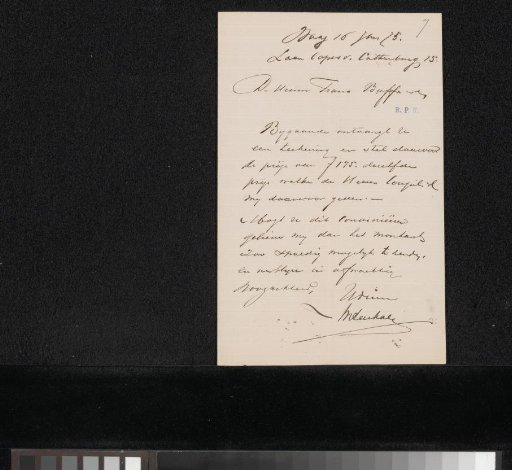 7
Haag 16 Jan 75.
Laan Copes v. Cattenburg, 15.
De Heeren Frans Buffa &
R. P. K.
Bijgaande ontvangt U
een teekening en stel daarvoor
de prijs van f 175. dezelfde
prijs welke de Heeren Goupil &
mij daarvoor geven.—
Mogt U dit convenieeren
gelieve mij dan het montant
zoo spoedig mogelijk te
en verblijve in afwachting
Hoogachtend,